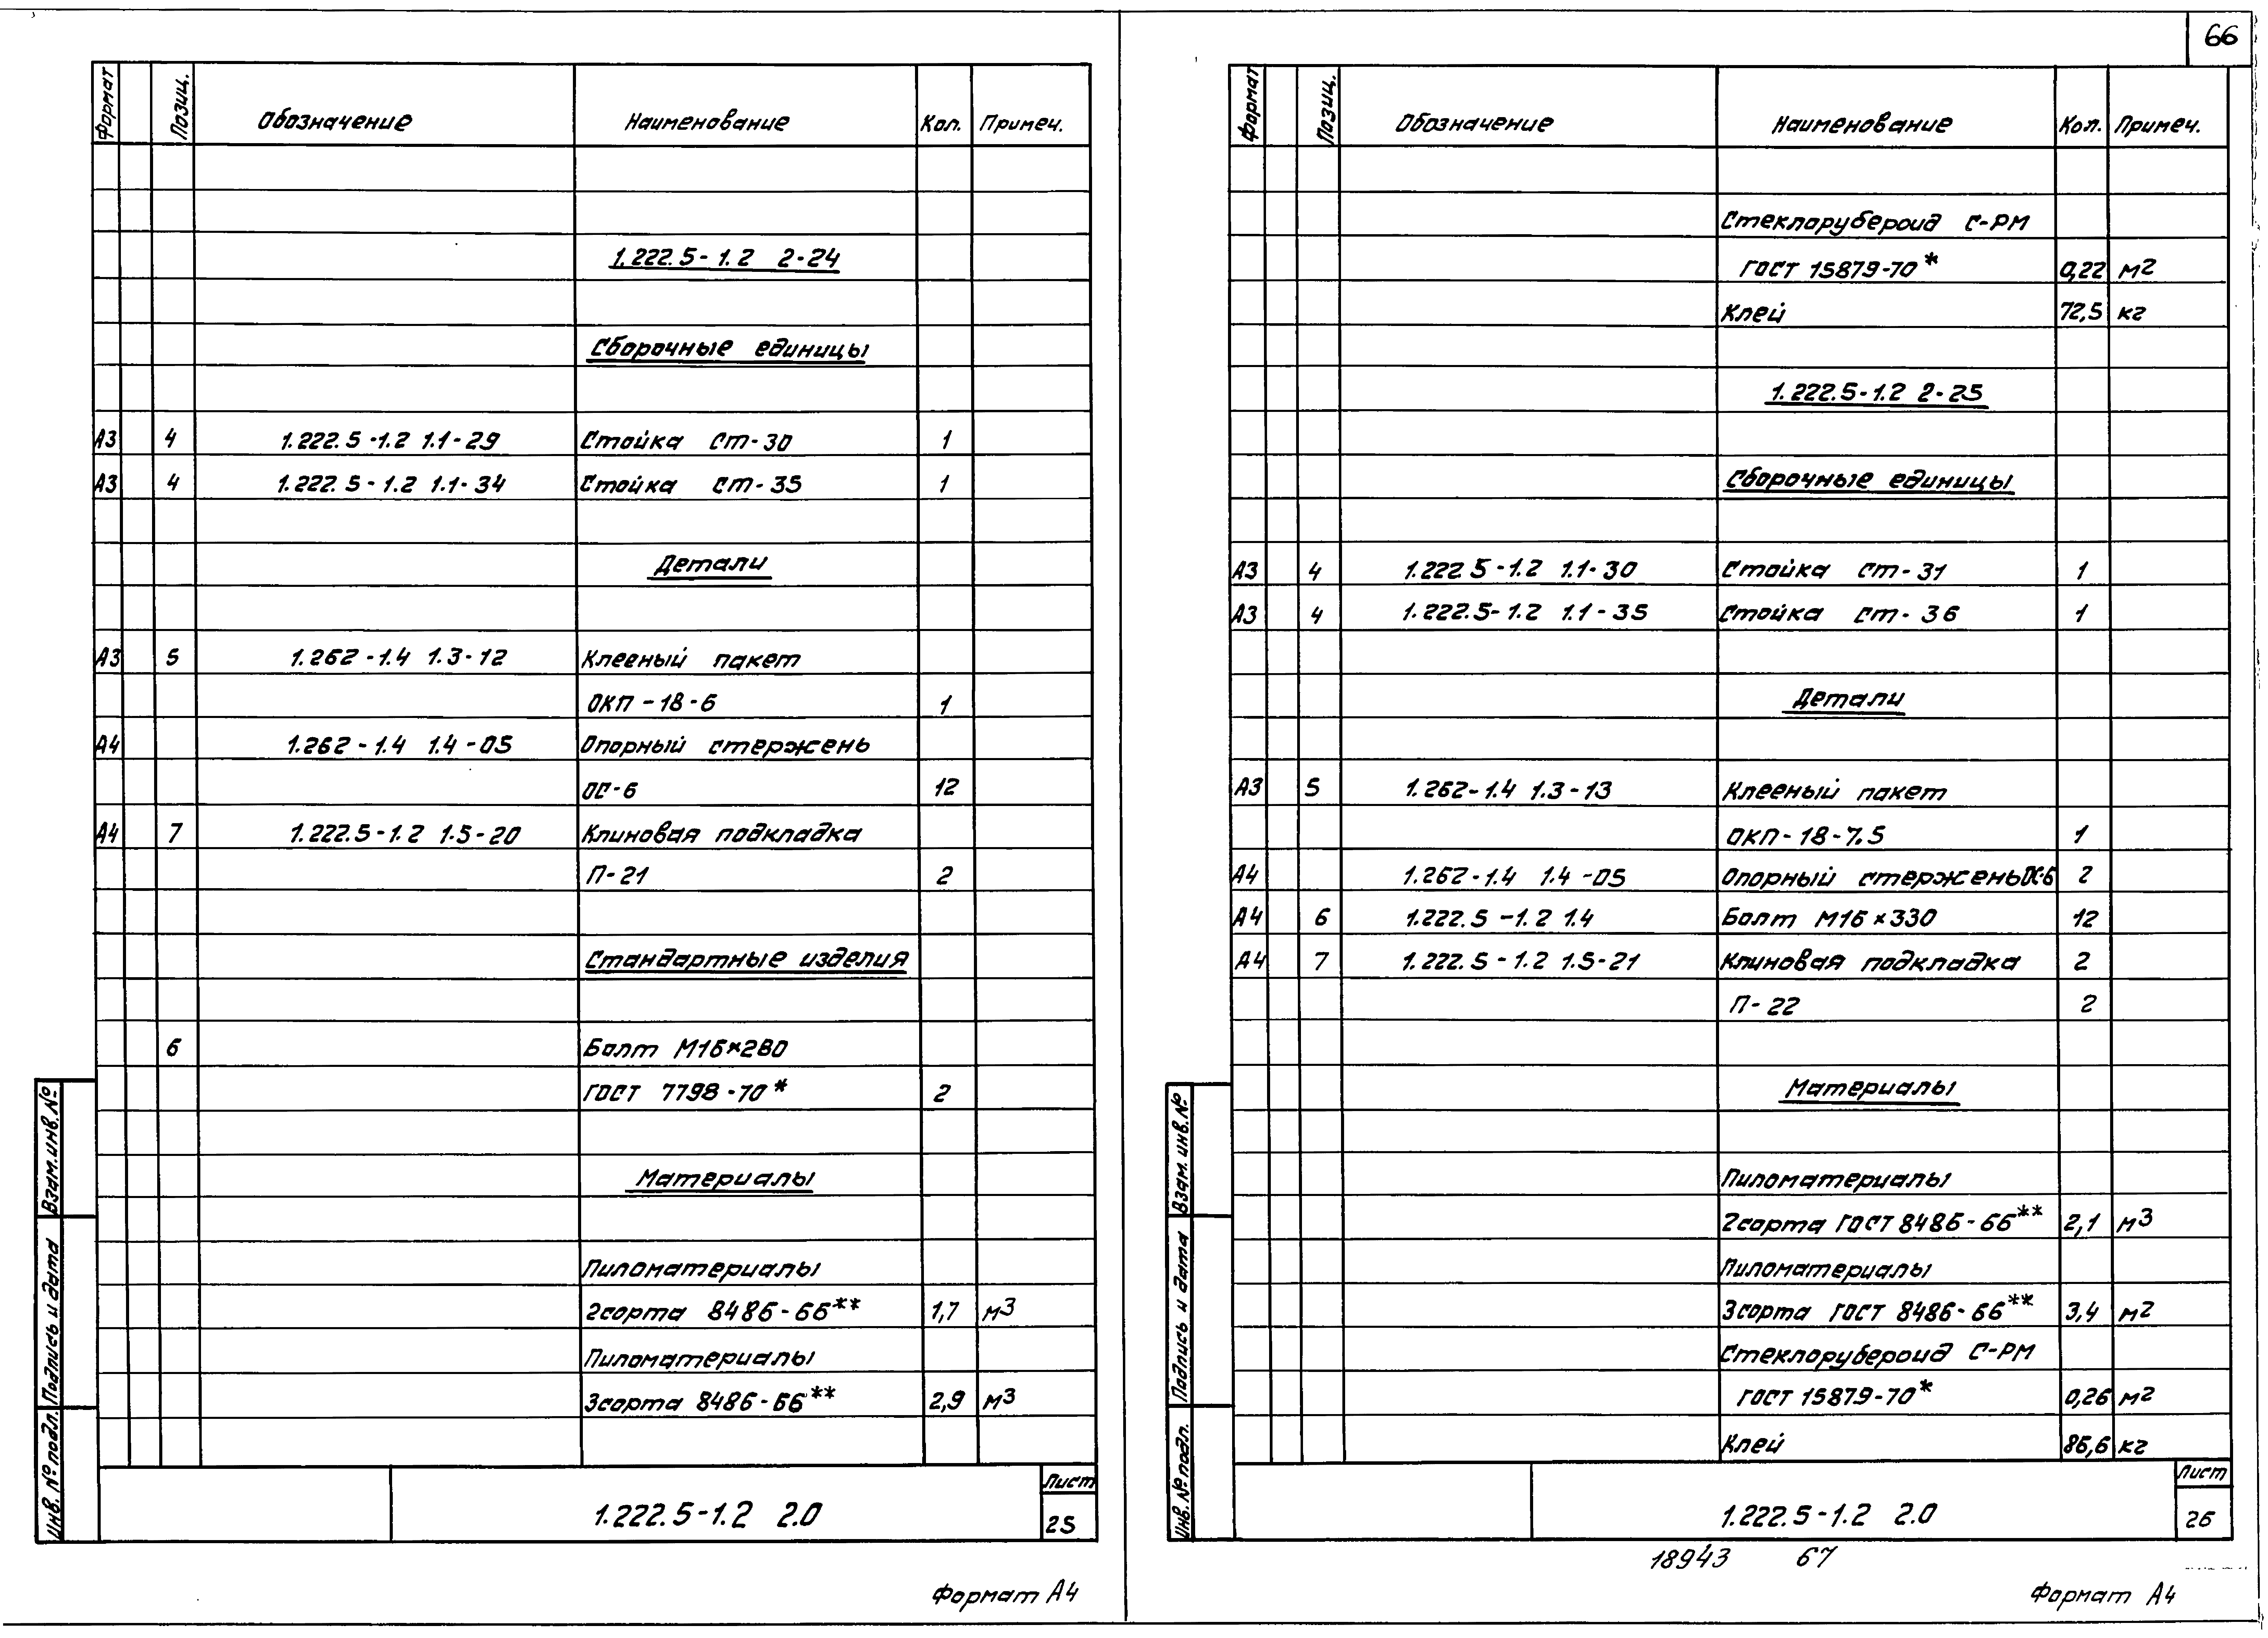 66
Формат Позиц. Обозначение Наименование Кол. Примеч.
1.222.5-1.2 2-24
Сборочные единицы
А3 4 1.222.5-1.2 1.1-29 Стойка Ст-30 1
А3 4 1.222.5-1.2 1.1-34 Стойка Ст-35 1
Детали
А3 5 1.262-1.4 1.3-12 Клееный пакет
ОКП-18-6 1
А4 1.262-1.4 1.4-05 Опорный стержень
ОС-6 12
А4 7 1.222.5-1.2 1.5-20 Клиновая подкладка
П-21 2
Стандартные изделия
6 Болт М16×280
ГОСТ 7798-70* 2
Материалы
Пиломатериалы
2сорта 8486-66** 1,7 м3
Пиломатериалы
3сорта 8486-66** 2,9 м3
Взам. инв. №
Подпись и дата
Инв. № подл.
1.222.5-1.2 2.0
Лист
25
Формат А4
Формат Позиц. Обозначение Наименование Кол. Примеч.
Стеклорубероид С-РМ
ГОСТ 15879-70* 0,22 м2
Клей 72,5 кг
1.222.5-1.2 2-25
Сборочные единицы
А3 4 1.222 5-1.2 1.1-30 Стойка Ст-31 1
А3 4 1.222.5-1.2 1.1-35 Стойка Ст-36 1
Детали
А3 5 1.262-1.4 1.3-13 Клееный пакет
ОКП-18-7.5 1
А4 1.262-1.4 1.4-05 Опорный стержень ОС-6 2
А4 6 1.222.5-1.2 1.4 Болт М16×330 12
А4 7 1.222.5-1.2 1.5-21 Клиновая подкладка 2
П-22 2
Материалы
Пиломатериалы
2сорта ГОСТ 8486-66** 2,1 м3
Пиломатериалы
3сорта ГОСТ 8486-66** 3,4 м2
Стеклорубероид С-РМ
ГОСТ 15879-70* 0,26 м2
Клей 86,6 кг
Взам. инв. №
Подпись и дата
Инв. № подл.
1.222.5-1.2 2.0
Лист
26
18943 67
Формат А4